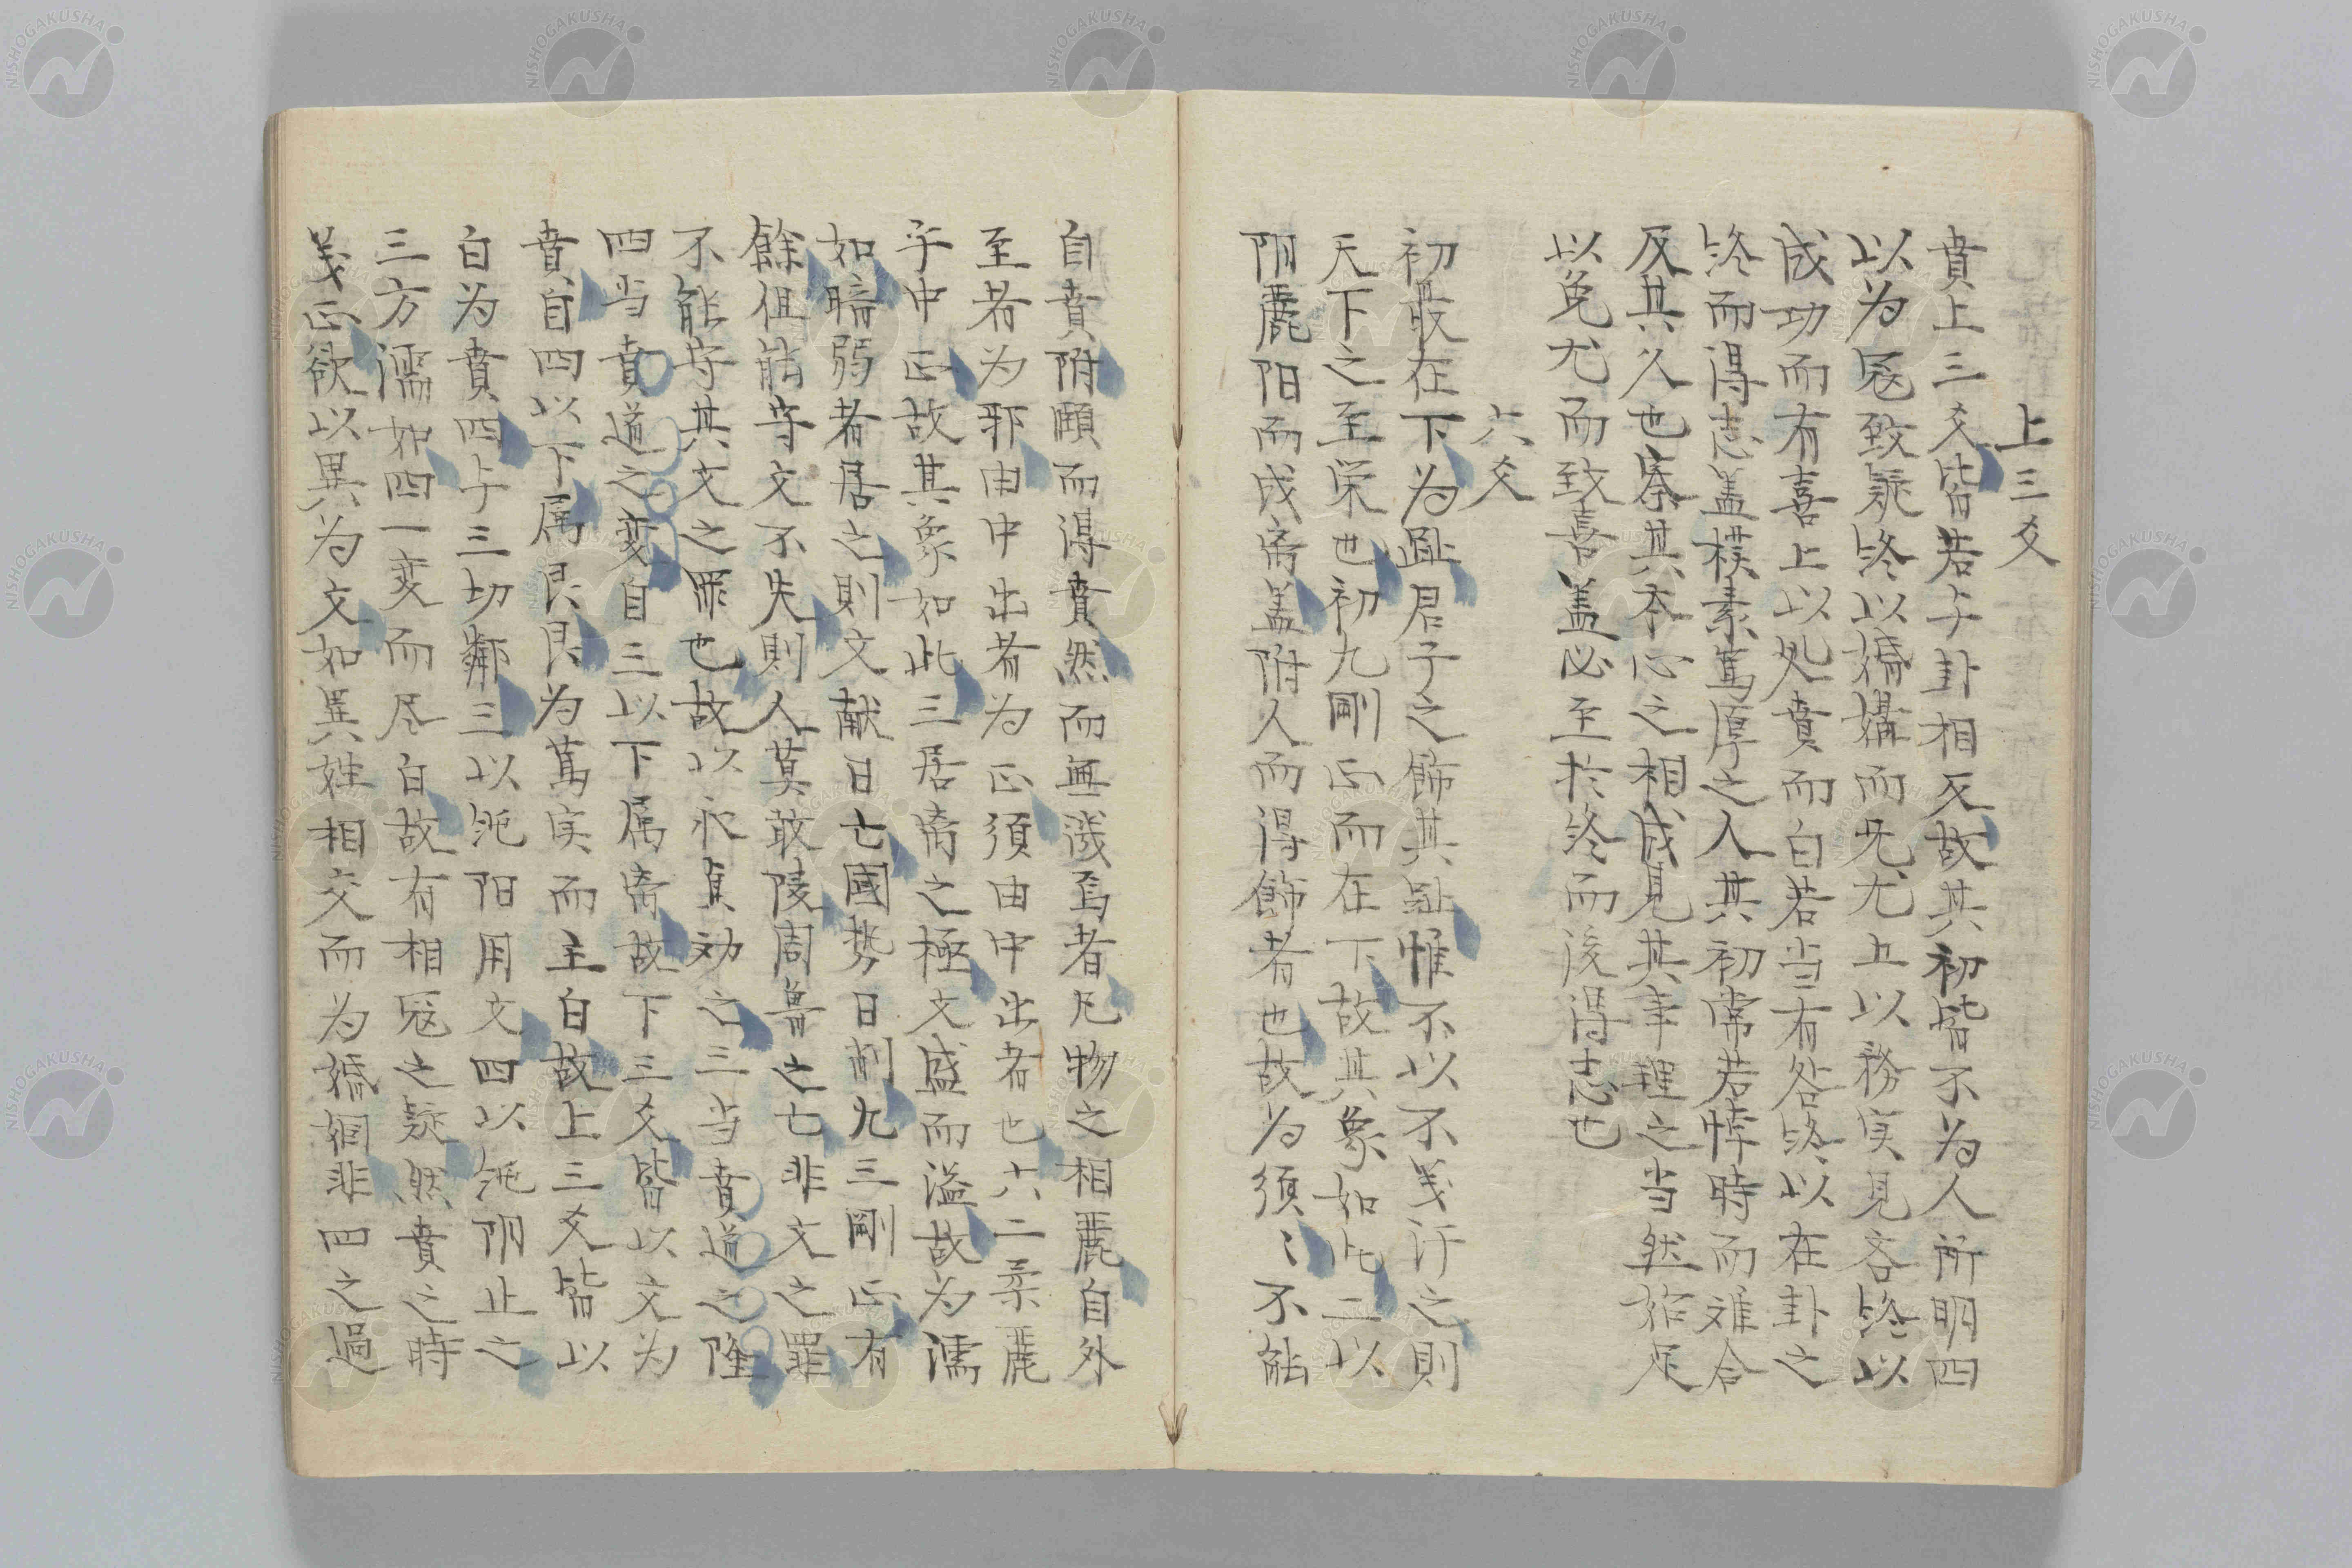 上三爻
賁上三爻皆若与卦相反故其初皆不為人所明四
以為寇致疑終以婚媾而旡尤五以務実見吝終以
成功而有喜上以処賁而白若当有咎終以在卦之
終而得志盖樸素篤厚之人其初常若悖時而难合
及其久也察其本心之相成見其事理之当然始足
以免尤而致喜盖必至於終而後得志也
六爻
初最在下為趾君子之飾其趾惟不以不义汙之則
天下之至栄也初九剛正而在下故其象如此二以
阴麗阳而成离盖附人而得飾者也故為須〻不能
自賁附頤而得賁然而無淺焉者凡物之相麗自外
至者為邪由中出者為正須由中出者也六二柔麗
乎中正故其象如此三居离之極文盛而溢故為濡
如暗弱者居之則文献日亡國势日削九三剛正有
餘但能守文不失則人莫敢陵周鲁之亡非文之罪
不能守其文之罪也故以永貞効之三当賁道之隆
四当賁道之変自三以下属离故下三爻皆以文為
賁自四以下属艮艮為萬実而主白故上三爻皆以
白為賁四与三切鄰三以純阳用文四以純阴止之
三方濡如四一变而尽白故有相寇之疑然賁之時
义正欲以異為文如異姓相交而為婚姻非四之過